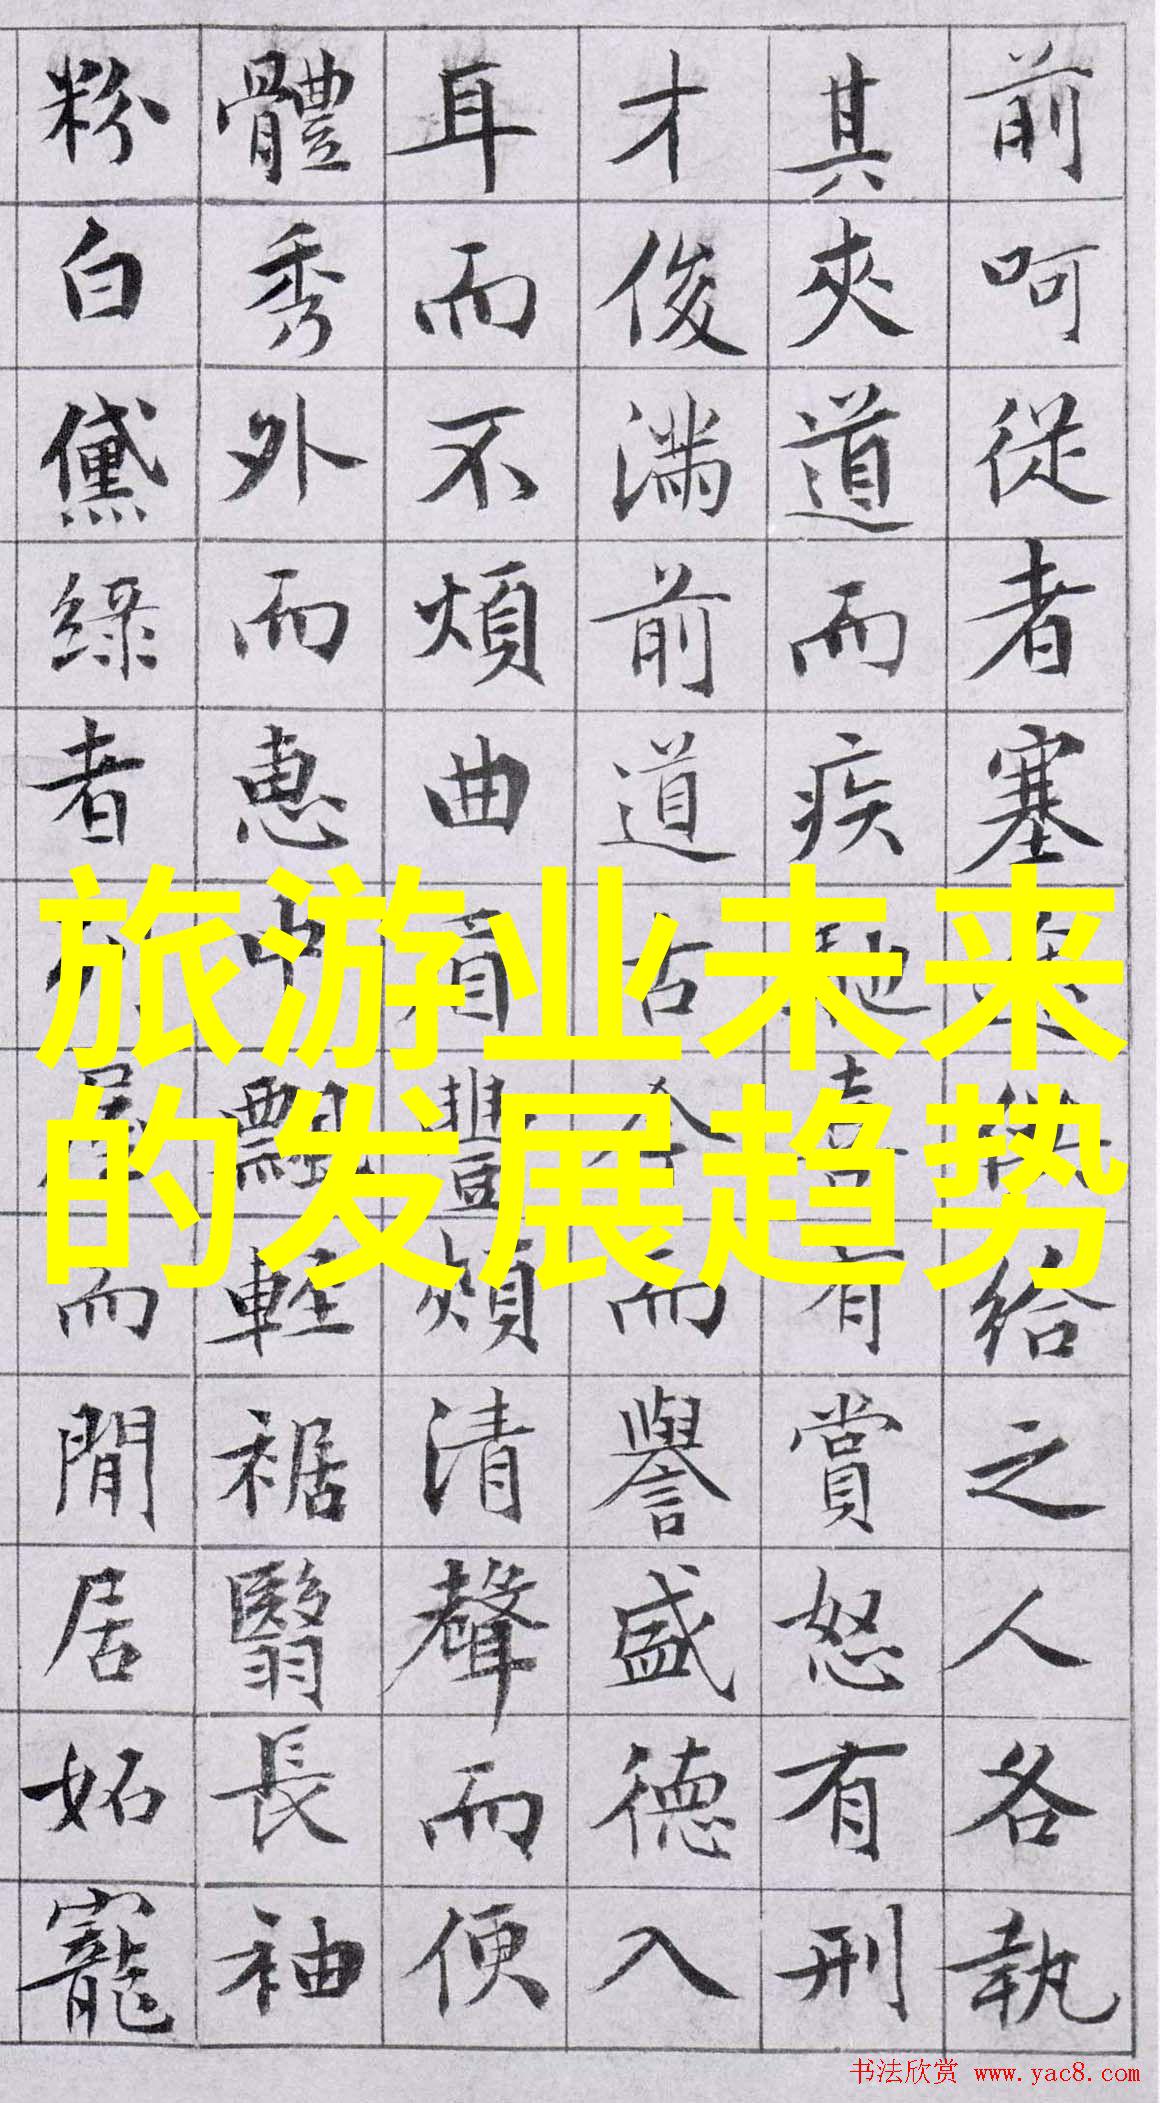 前呵從者塞途供給之人各執
其夾道而疾馳喜有賞怒有刑
才俊滿前道古今而譽盛德入
耳而不煩曲眉豐頰清聲而便
體秀外而惠中飄輕裾翳長袖
粉白黛綠者列屋而閒居妬寵
旅游业未来
的发展趋势
书法欣赏 www.yac8.com